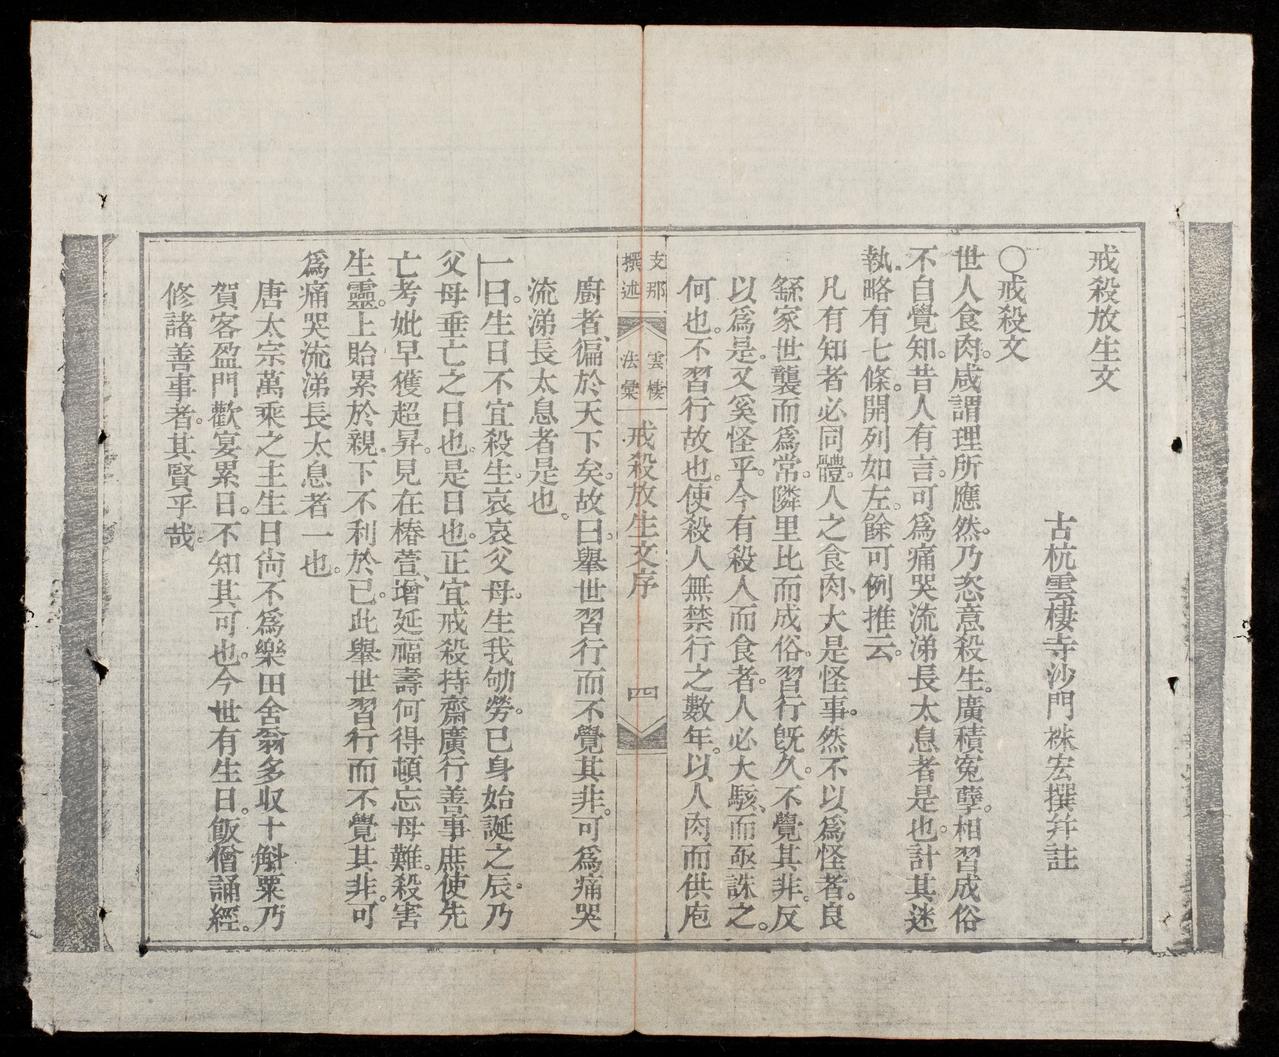 戒殺放生文
古杭雲棲寺沙門袾宏撰幷註
〇戒殺文
世人食肉。咸謂理所應然。乃恣意殺生。廣積寃孽。相習成俗
不自覺知。昔人有言。可爲痛哭流涕長太息者是也。計其迷
執。略有七條。開列如左。餘可例推云。
凡有知者必同體。人之食肉、大是怪事。然不以爲怪者。良
繇家世襲而爲常。隣里比而成俗。習行旣久。不覺其非。反
以爲是。又奚怪乎。今有殺人而食者。人必大駭、而亟誅之。
何也。不習行故也。使殺人無禁行之數年。以人肉而供庖
支那
撰述
雲棲
法彙
戒殺放生文序
四
廚者、徧於天下矣。故曰舉世習行而不覺其非。可爲痛哭
流涕長太息者是也。
一曰。生日不宜殺生。哀哀父母。生我劬勞。已身始誕之辰。乃
父母垂亡之日也。是日也。正宜戒殺持齋廣行善事。庶使先
亡考妣早獲超昇。見在椿萱、增延福壽何得頓忘母難。殺害
生靈。上貽累於親。下不利於已。此舉世習行而不覺其非。可
爲痛哭流涕長太息者一也。
唐太宗萬乘之主生日尙不爲樂田舍翁多収十斛粟乃
賀客盈門歡宴累日。不知其可也。今世有生日。飯僧誦經。
修諸善事者。其賢乎哉。